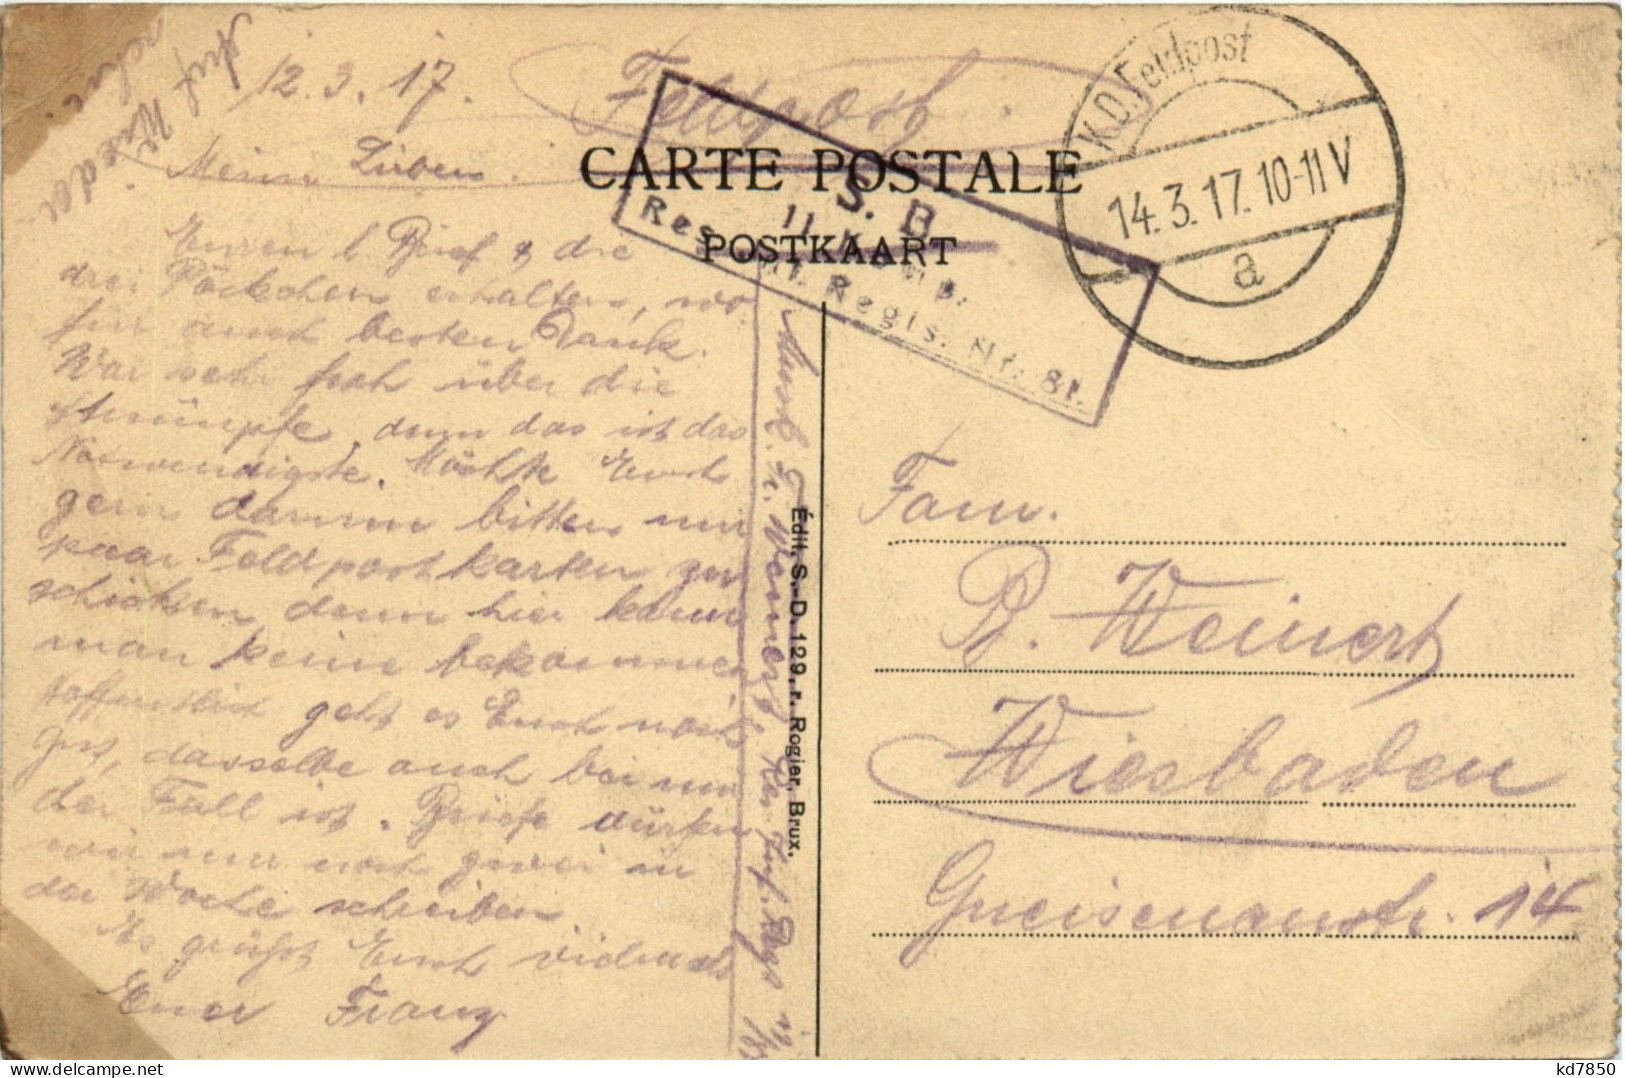 Auf Wieder-
12.3.17.
Feldpost
CARTE POSTALE
POSTKAART
K.D. Feldpost
14.3.17. 10-11 V
a
S. B.
11. Komp.
Res. Regis. Nr. 81.
Meine Lieben.
Euren l. Brief & die
drei Päckchen erhalten, wo
für auch besten Dank.
War sehr froh über die
Strümpfe, denn das ist das
Notwendigste. Möchte Euch
gern darum bitten mir
paar Feldpostkarten zu
schicken, denn hier kann
man keine bekommen
Hoffentlich geht es Euch noch
gut, dasselbe auch bei mir
der Fall ist. Briefe dürfen
wir nur noch zwei in
der Woche schreiben.
Es grüßt Euch vielmals
Euer Franz
Weinert Inf. Regt
Édit. S.-D. 129, r. Rogier, Brux.
Fam.
B. Weinert
Wiesbaden
Gneisenaustr. 14
kd7850